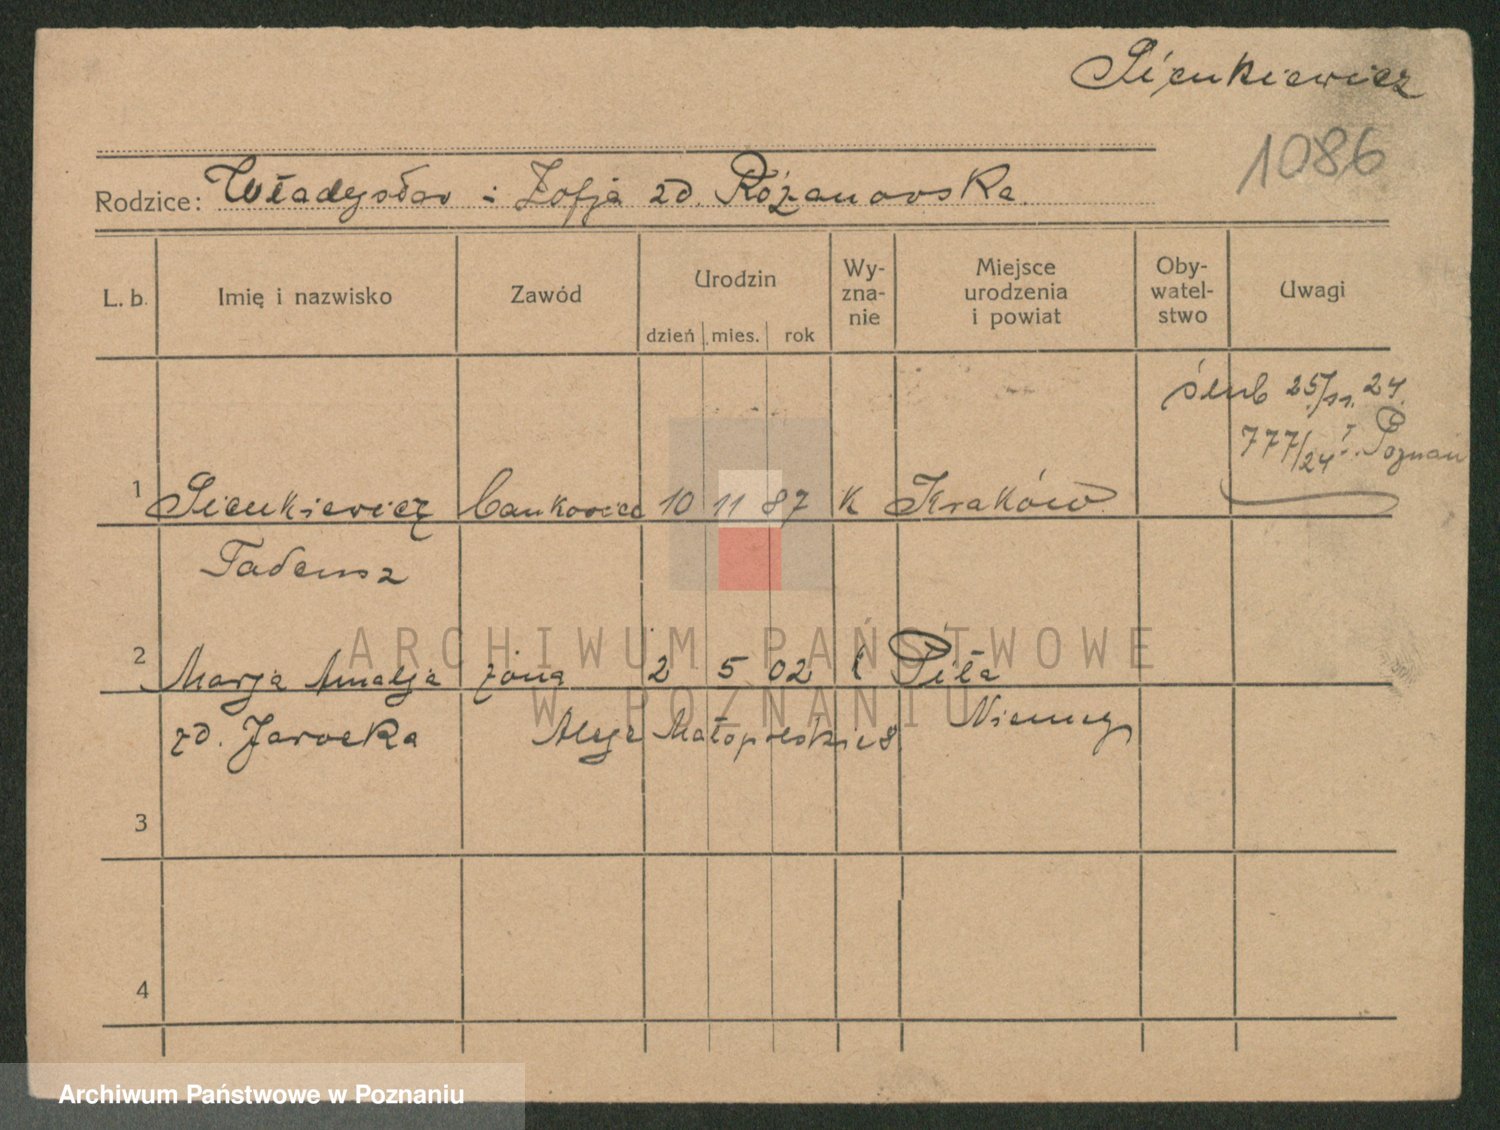 Sienkiewicz
1086
Rodzice: Władysław i Zofja zd. Różanowska.
L. b. Imię i nazwisko Zawód Urodzin Wy- zna- nie Miejsce urodzenia i powiat Oby- watel- stwo Uwagi
dzień mies. rok
ślub 25/11. 24.
777/24 I. Poznań
1 Sienkiewicz bankowiec 10 11 87 K Kraków
Tadeusz
2 Marja Amalja żona 2 5 02 k Piła
zd. Jarocka Niemcy
Małopolskie 8
3
4
ARCHIWUM PAŃSTWOWE
W POZNANIU
Archiwum Państwowe w Poznaniu